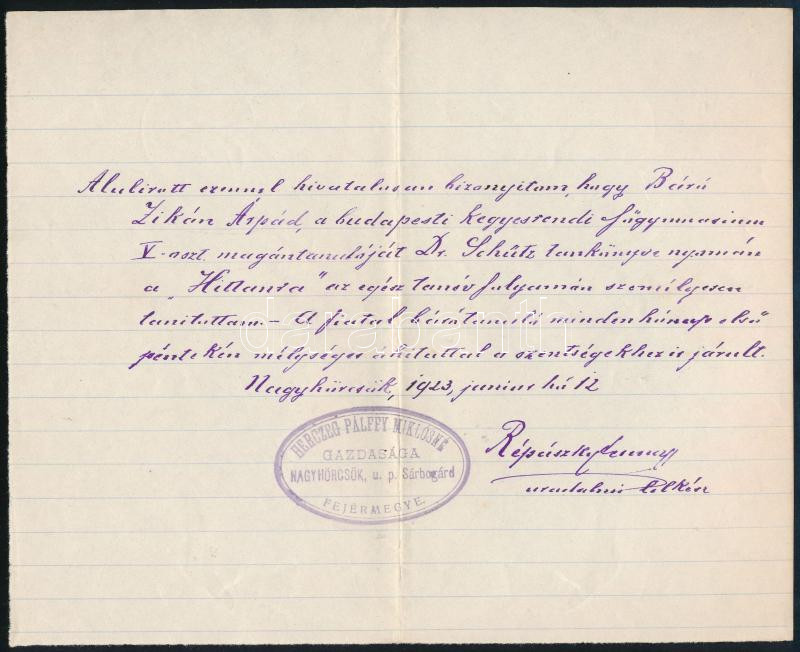 Alulirott ezennel hivatalosan bizonyitom, hogy Báró
Zikán Árpád, a budapesti kegyesrendi főgymnasium
V. oszt. magántanulóját Dr. Schütz tankönyve nyomán
a "Hittanra" az egész tanév folyamán személyesen
tanitottam. - A fiatal báró tanuló minden hónap első
péntekén mélységes áhitattal a szentségekhez is járult.
Nagyhörcsök, 1923, junius hó 12
Répászky
uradalmi lelkész
HERCZEG PÁLFFY MIKLÓSNÉ
GAZDASÁGA
NAGYHÖRCSÖK, u. p. Sárbogárd
FEJÉRMEGYE.
darabanth